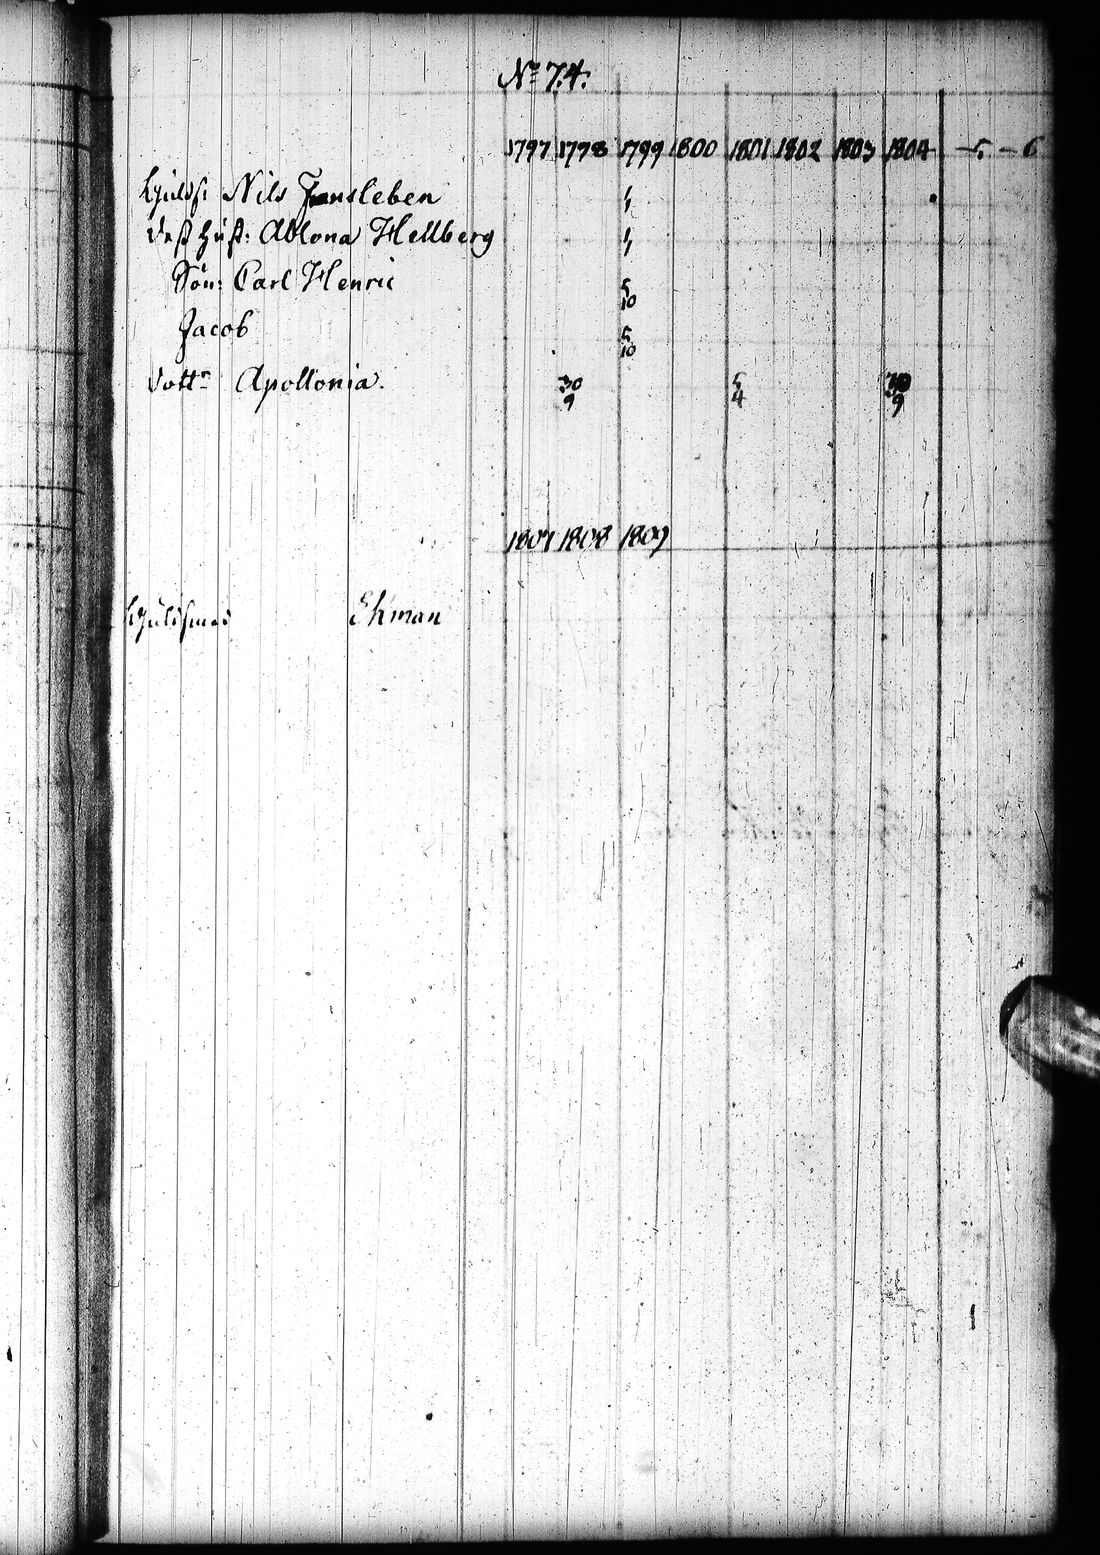 No 74.
1797 1798 1799 1800 1801 1802 1803 1804 — 5. — 6
Guldsm: Nils Fansleben
Deß Hust: Ablona Hellberg
Son: Carl Henric 5/10
Jacob 5/10
Dottr Apollonia. 30/9 5/4 30/9
1807 1808 1809
Guldsmed Ekman